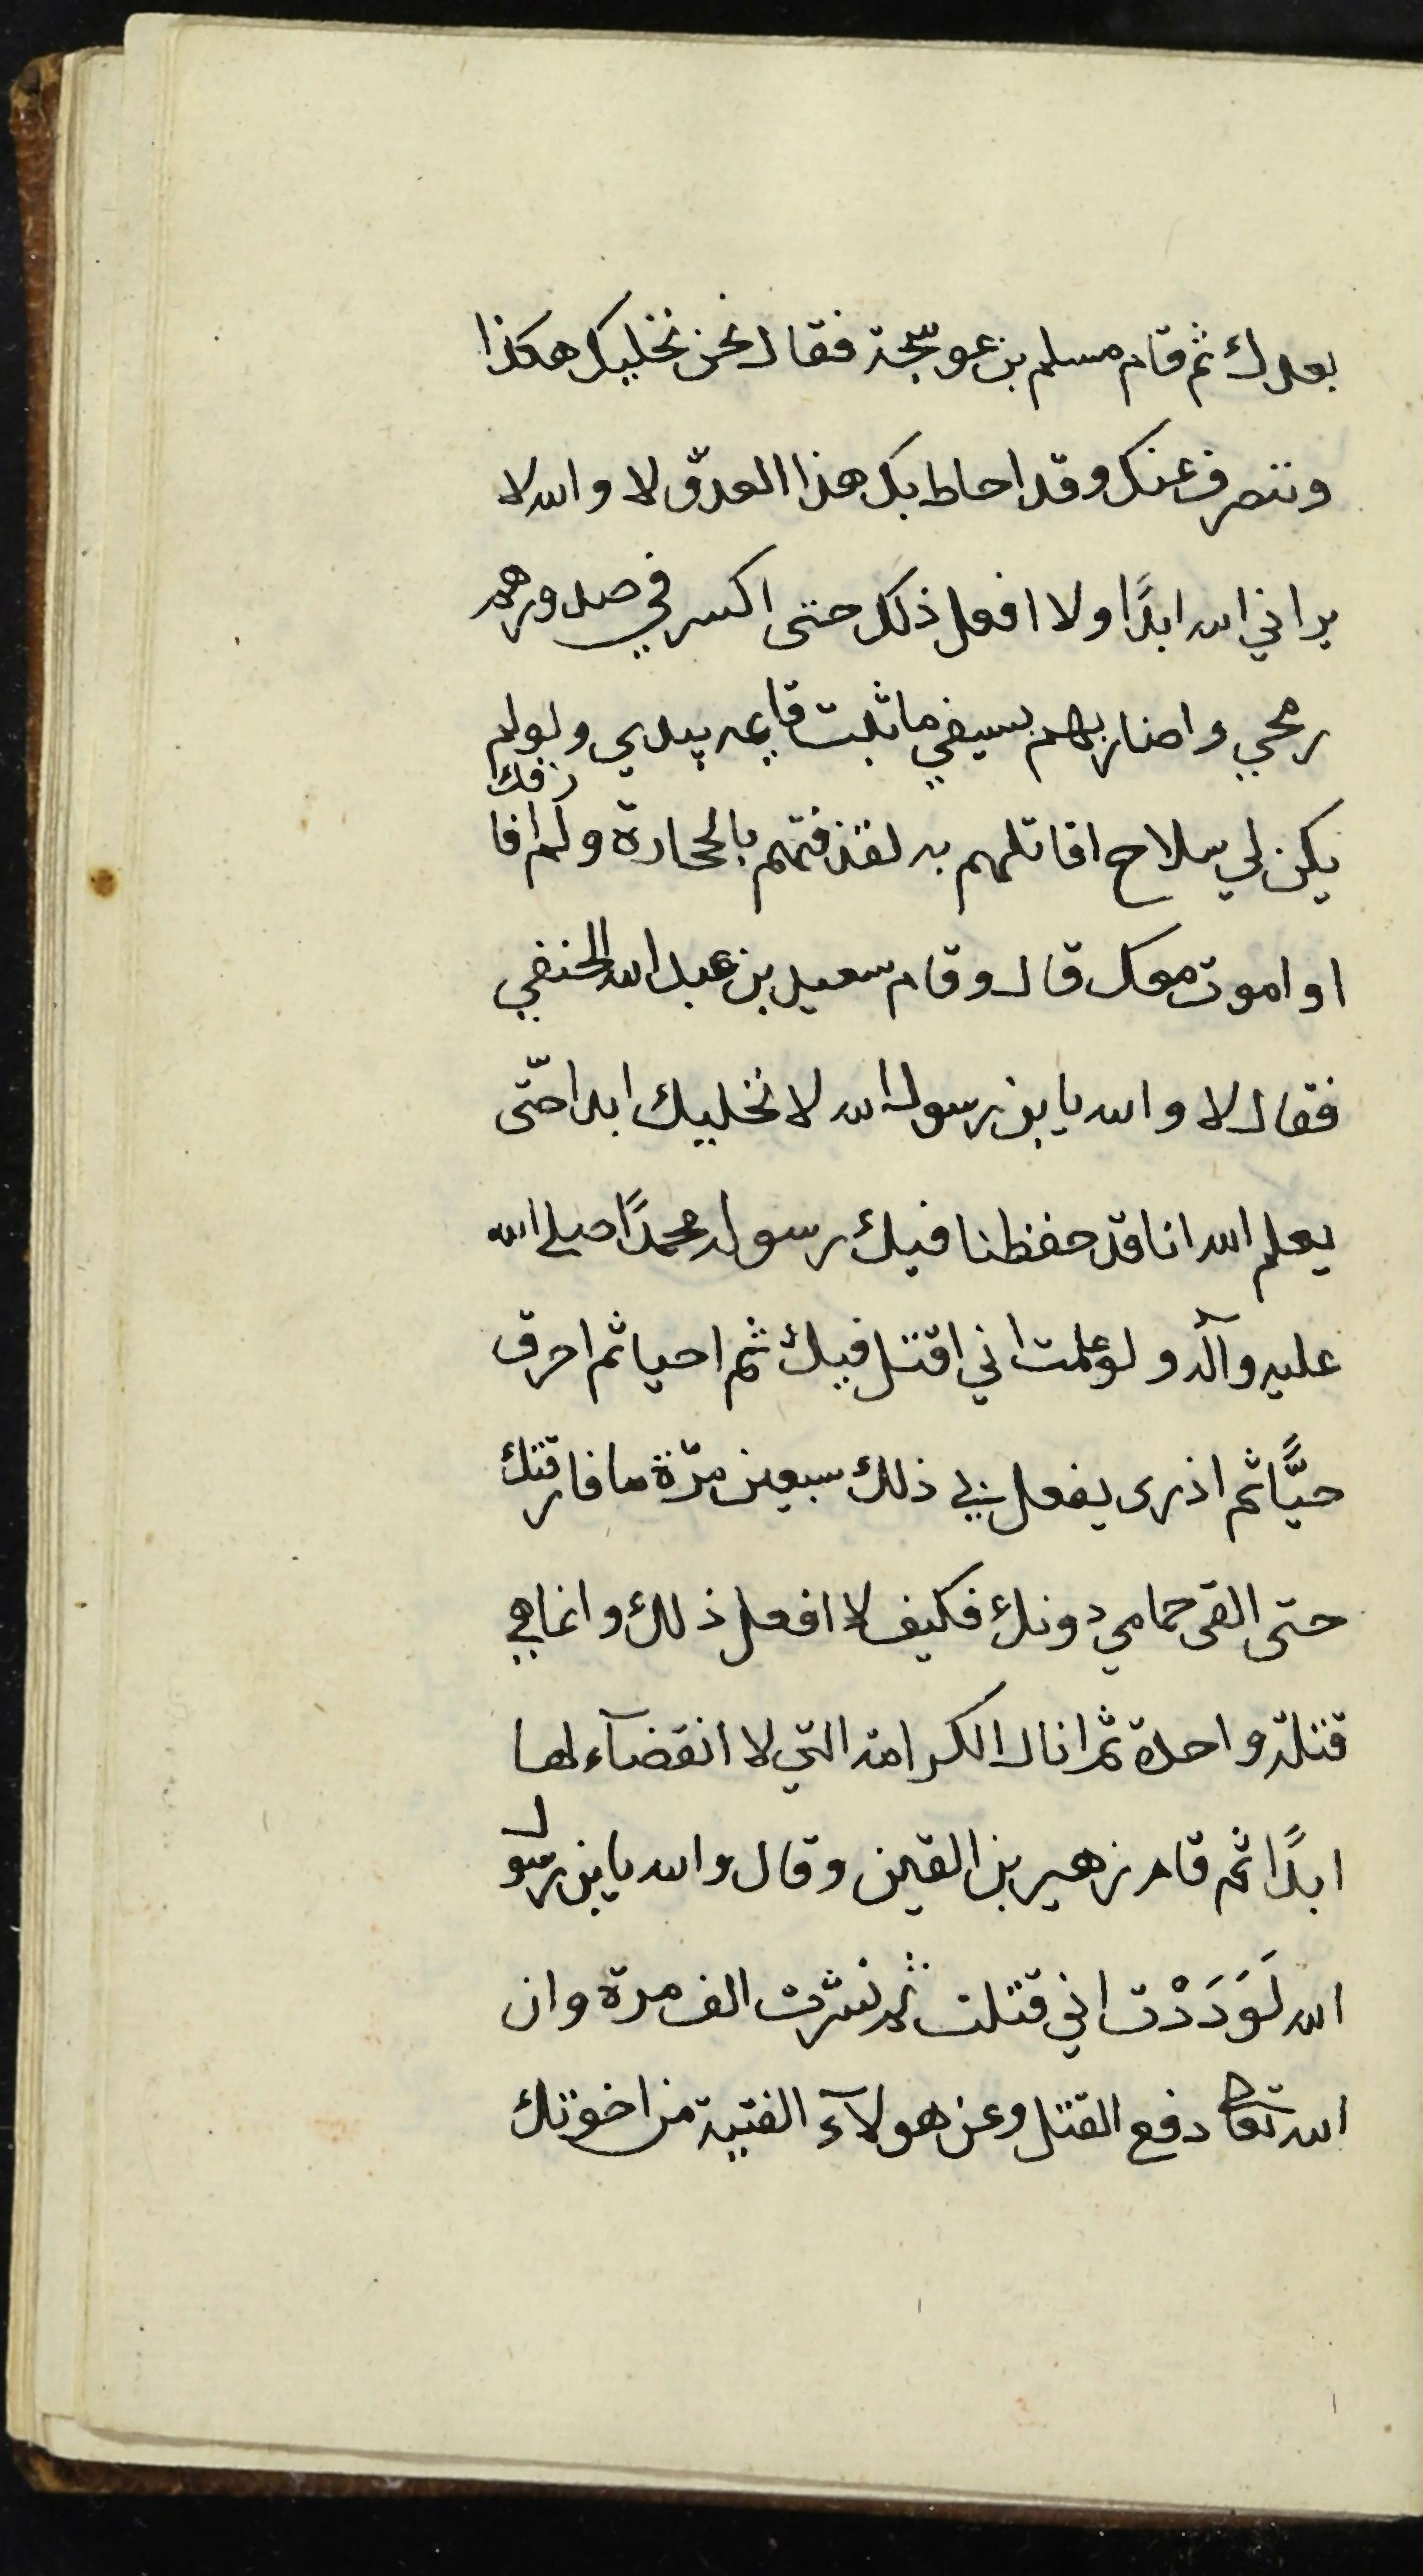 بعدك ثم قام مسلم بن عوسجة فقال نحن نخليك هكذا
وننصرف عنك وقد احاط بك هذا العدوّ لا والله لا
يراني الله ابدًا ولا افعل ذلك حتى اكسر في صدورهم
رمحي واضاربهم بسيفي ما ثبت قايمه بيدي ولو لم
يكن لي سلاح اقاتلهم به لقذفتهم بالحجارة ولم افارقك
او اموت معك قال وقام سعيد بن عبد الله الحنفي
فقال لا والله يا بن رسول الله لا نخليك ابدا حتّى
يعلم الله انا قد حفظنا فيك رسوله محمدًا صلى الله
عليه وآله ولو علمت اني اقتل فيك ثم احيا ثم احرق
حيًّا ثم اذرى يفعل بي ذلك سبعين مرّة ما فارقتك
حتى القى حمامي دونك فكيف لا افعل ذلك وانما هي
قتلة واحدة ثم انال الكرامة التي لا انقضآء لها
ابدًا ثم قام زهير بن القين وقال والله يا بن رسول
الله لَوَدَدْت اني قتلت ثم نشرت الف مرة وان
الله تعا دفع القتل وعن هولآء الفتية من اخوتك